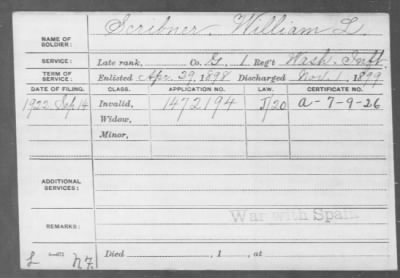 NAME OF SOLDIER: Scribner, William L.
SERVICE: Late rank, Co. G, 1 Reg't Wash. Inft.
TERM OF SERVICE: Enlisted Apr. 29, 1898 Discharged Nov. 1, 1899
DATE OF FILING. CLASS. APPLICATION NO. LAW. CERTIFICATE NO.
1922 Sep 14 Invalid, 1472194 J/20 a-7-9-26
Widow,
Minor,
ADDITIONAL SERVICES:
War with Spain
REMARKS:
L N.F.
Died , 1 , at